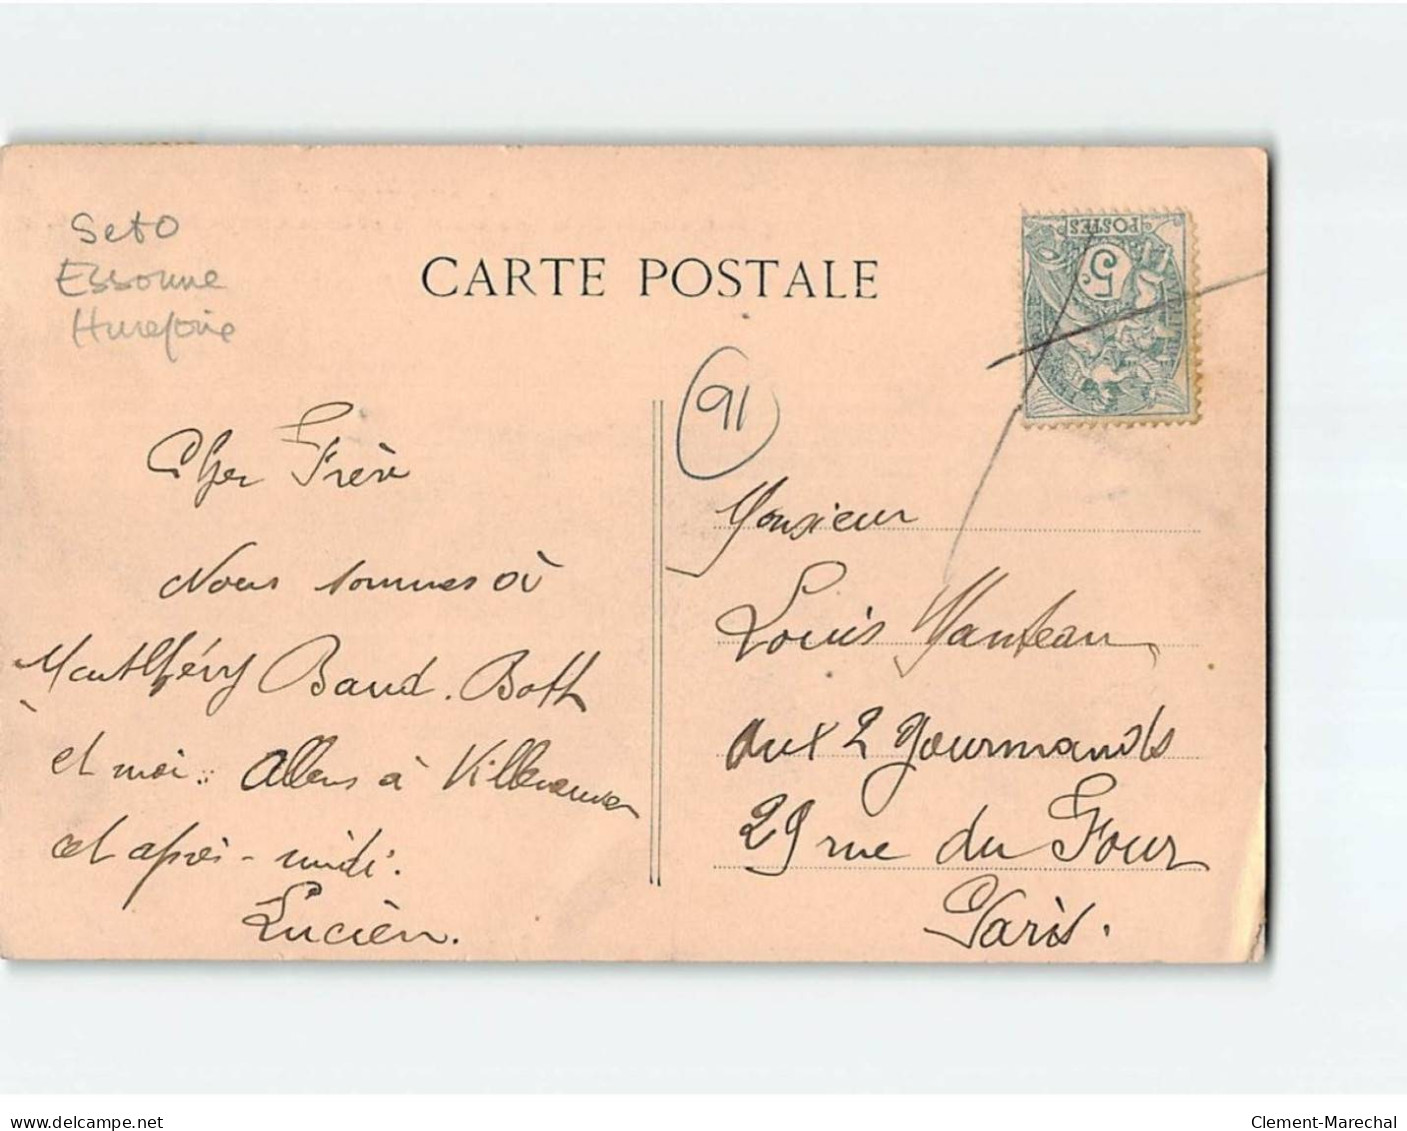 Seto
Essonne
Hurepoix
CARTE POSTALE
POSTES
5c
91
Cher Frère
Nous sommes à
Montlhéry Baud. Both
et moi. Allons à
cet après-midi.
Lucien.
Monsieur
Louis
aux 2 gourmands
29 rue du Four
Paris.
delcampe.net
Clement-Marechal